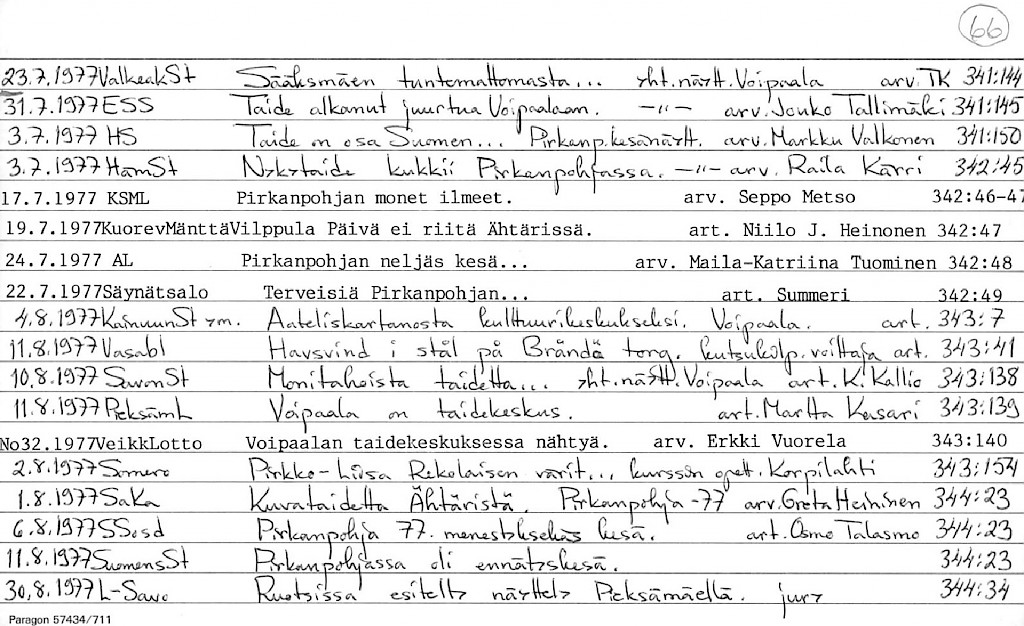 66
23.7.1977 ValkeakSt Sääksmäen tuntemattomasta... yht.näytt. Voipaala arv. TK 341:144
31.7.1977 ESS Taide alkanut juurtua Voipaalaan. -"- arv. Jouko Tallimäki 341:145
3.7.1977 HS Taide on osa Suomen... Pirkanp.kesänäytt. arv. Markku Valkonen 341:150
3.7.1977 HämSt Nykytaide kukkii Pirkanpohjassa. -"- arv. Raila Kärri 342:45
17.7.1977 KSML Pirkanpohjan monet ilmeet. arv. Seppo Metso 342:46-47
19.7.1977KuorevMänttäVilppula Päivä ei riitä Ähtärissä. art. Niilo J. Heinonen 342:47
24.7.1977 AL Pirkanpohjan neljäs kesä... arv. Maila-Katriina Tuominen 342:48
22.7.1977Säynätsalo Terveisiä Pirkanpohjan... art. Summeri 342:49
4.8.1977 KainuunSt ym. Aateliskartanosta kulttuurikeskukseksi. Voipaala. art. 343:7
11.8.1977 Vasabl Havsvind i stål på Brändö torg. kutsukilp. voittaja art. 343:41
10.8.1977 SavonSt Monitahoista taidetta... yht.näytt. Voipaala art. K. Kallio 343:138
11.8.1977 PieksämL Voipaala on taidekeskus. art. Martta Kaisari 343:139
No32.1977VeikkLotto Voipaalan taidekeskuksessa nähtyä. arv. Erkki Vuorela 343:140
2.8.1977 Somero Pirkko-Liisa Rekolaisen värit... kurssin opett. Korpilahti 343:154
1.8.1977 SaKa Kuvataidetta Ähtäristä. Pirkanpohja -77 arv. Greta Heininen 344:23
6.8.1977 SSosd Pirkanpohja 77. menestyksekäs kesä. art. Osmo Talasmo 344:23
11.8.1977 SuomenSt Pirkanpohjassa oli ennätyskesä. 344:23
30.8.1977 L-Savo Ruotsissa esitelty näyttely Pieksämäellä. jury 344:34
Paragon 57434/711